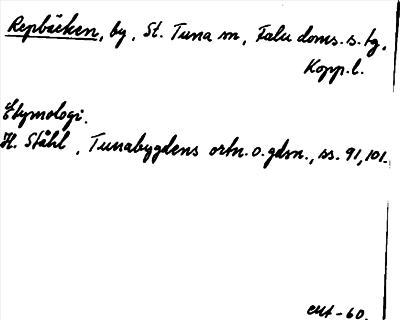 Repbäcken, by, St. Tuna sn, Falu doms. s. tg,
Kopp. l.
Etymologi.
H. Ståhl, Tunabygdens ortn. o. gdsn., ss. 91, 101.
-60.